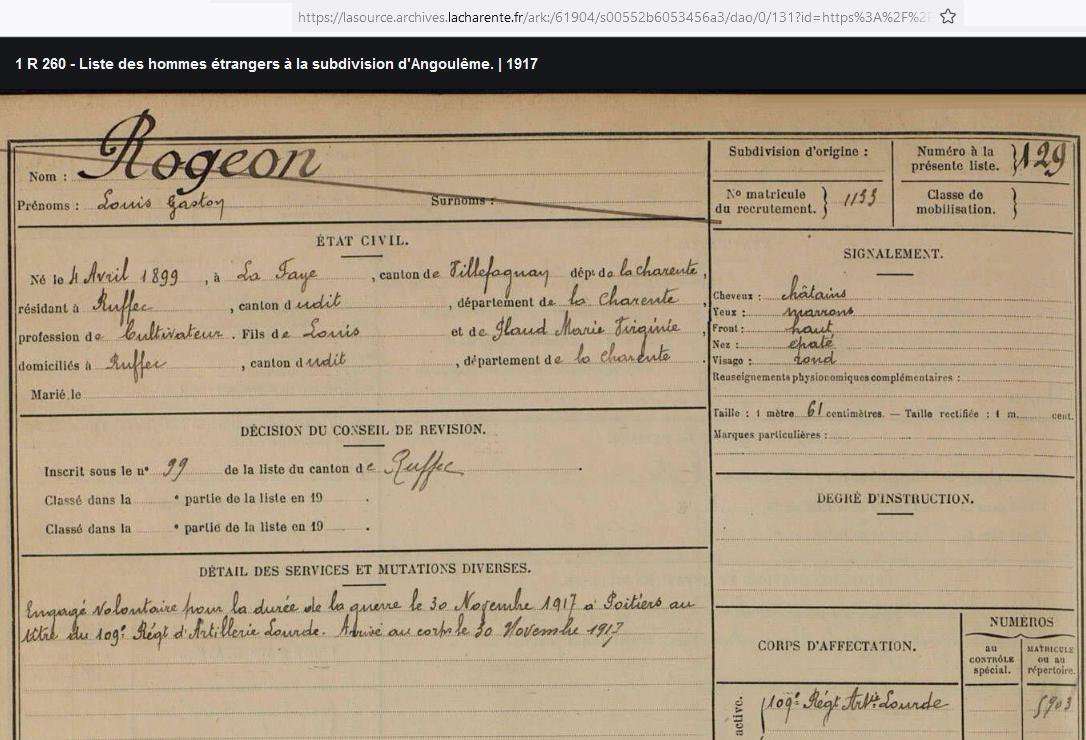 https://lasource.archives.lacharente.fr/ark:/61904/s00552b6053456a3/dao/0/131?id=https%3A%2F%2F
1 R 260 - Liste des hommes étrangers à la subdivision d'Angoulême. | 1917
Nom : Rogeon
Prénoms : Louis Gaston Surnoms :
Subdivision d'origine :
Numéro à la présente liste. } 129
N° matricule du recrutement. } 1133
Classe de mobilisation. }
ÉTAT CIVIL.
Né le 4 Avril 1899, à La Faye, canton de Villefagnan dépt de la Charente,
résidant à Ruffec, canton dudit, département de la Charente
profession de Cultivateur. Fils de Louis et de Glaud Marie Virginie,
domiciliés à Ruffec, canton dudit, département de la Charente.
Marié le
SIGNALEMENT.
Cheveux : châtains
Yeux : marrons
Front : haut
Nez : épaté
Visage : rond
Renseignements physionomiques complémentaires :
Taille : 1 mètre 61 centimètres. — Taille rectifiée : 1 m. cent.
Marques particulières :
DÉCISION DU CONSEIL DE REVISION.
Inscrit sous le n° 99 de la liste du canton de Ruffec.
Classé dans la e partie de la liste en 19 .
Classé dans la e partie de la liste en 19 .
DEGRÉ D'INSTRUCTION.
DÉTAIL DES SERVICES ET MUTATIONS DIVERSES.
Engagé volontaire pour la durée de la guerre le 30 Novembre 1917 à Poitiers au
titre du 109e Régt d'Artillerie Lourde. Arrivé au corps le 30 Novembre 1917
CORPS D'AFFECTATION.
NUMÉROS
au CONTRÔLE spécial.
MATRICULE ou au répertoire.
active.
109e Régt Artie Lourde
5903